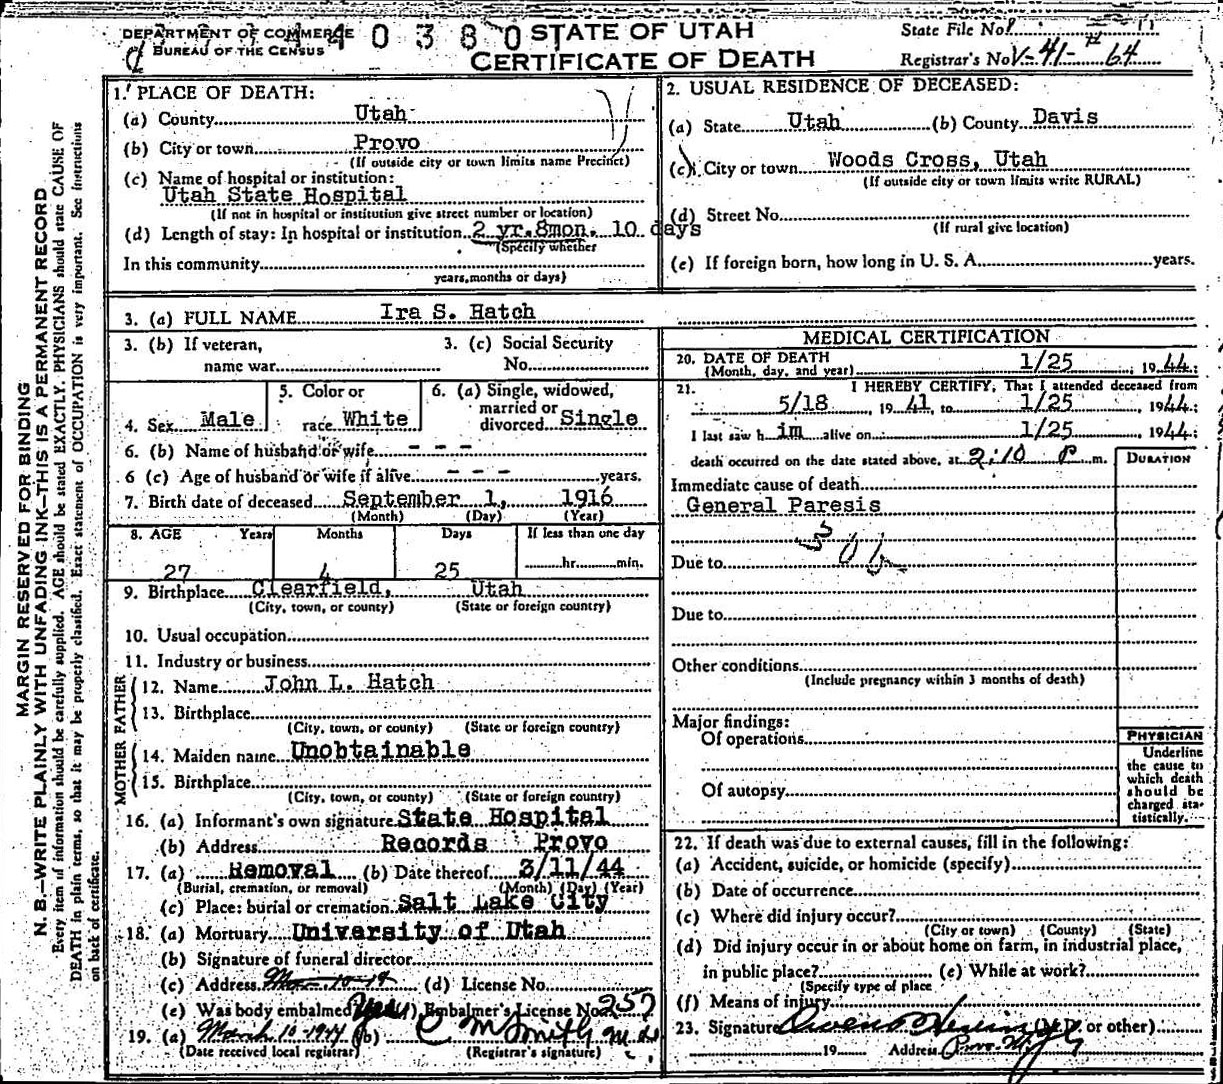 DEPARTMENT OF COMMERCE
BUREAU OF THE CENSUS
40380
STATE OF UTAH
CERTIFICATE OF DEATH
State File No.
Registrar's No. V-41- 64
MARGIN RESERVED FOR BINDING
N. B.—WRITE PLAINLY WITH UNFADING INK—THIS IS A PERMANENT RECORD
Every item of information should be carefully supplied. AGE should be stated EXACTLY. PHYSICIANS should state CAUSE OF
DEATH in plain terms, so that it may be properly classified. Exact statement of OCCUPATION is very important. See instructions
on back of certificate.
1. PLACE OF DEATH:
(a) County Utah
(b) City or town Provo
(If outside city or town limits name Precinct)
(c) Name of hospital or institution:
Utah State Hospital
(If not in hospital or institution give street number or location)
(d) Length of stay: In hospital or institution 2 yr. 8mon. 10 days
(Specify whether
In this community
years, months or days)
2. USUAL RESIDENCE OF DECEASED:
(a) State Utah (b) County Davis
(c) City or town Woods Cross, Utah
(If outside city or town limits write RURAL)
(d) Street No.
(If rural give location)
(e) If foreign born, how long in U. S. A. years.
3. (a) FULL NAME Ira S. Hatch
3. (b) If veteran,
name war
3. (c) Social Security
No.
4. Sex Male
5. Color or
race White
6. (a) Single, widowed,
married or
divorced Single
6. (b) Name of husband or wife - - -
6 (c) Age of husband or wife if alive - - - years.
7. Birth date of deceased September 1, 1916
(Month) (Day) (Year)
8. AGE Years Months Days If less than one day
27 4 25 hr. min.
9. Birthplace Clearfield, Utah
(City, town, or county) (State or foreign country)
10. Usual occupation
11. Industry or business
FATHER
12. Name John L. Hatch
13. Birthplace
(City, town, or county) (State or foreign country)
MOTHER
14. Maiden name Unobtainable
15. Birthplace
(City, town, or county) (State or foreign country)
16. (a) Informant's own signature State Hospital
(b) Address Records Provo
17. (a) Removal (b) Date thereof 3/11/44
(Burial, cremation, or removal) (Month) (Day) (Year)
(c) Place: burial or cremation Salt Lake City
18. (a) Mortuary University of Utah
(b) Signature of funeral director
(c) Address (d) License No.
(e) Was body embalmed Yes Embalmer's License No. 257
19. (a) March 10-1944 (b) C M Smith M d
(Date received local registrar) (Registrar's signature)
MEDICAL CERTIFICATION
20. DATE OF DEATH
(Month, day, and year) 1/25, 1944;
21. I HEREBY CERTIFY, That I attended deceased from
5/18, 1941, to 1/25, 1944;
I last saw h im alive on 1/25, 1944;
death occurred on the date stated above, at 2:10 P m.
DURATION
Immediate cause of death
General Paresis
Due to
Due to
Other conditions
(Include pregnancy within 3 months of death)
Major findings:
Of operations
Of autopsy
PHYSICIAN
Underline
the cause to
which death
should be
charged sta-
tistically.
22. If death was due to external causes, fill in the following:
(a) Accident, suicide, or homicide (specify)
(b) Date of occurrence
(c) Where did injury occur?
(City or town) (County) (State)
(d) Did injury occur in or about home on farm, in industrial place,
in public place? (e) While at work?
(Specify type of place
(f) Means of injury
23. Signature (M.D. or other)
19 Address